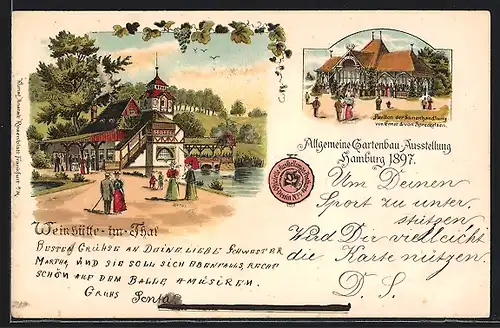 Pavillon der Samenhandlung
von Ernst & von Spreckelsen.
Allgemeine Gartenbau-Ausstellung
Hamburg 1897.
Weinhütte-im-Thal
Um Deinen
Sport zu unter-
stützen
Wird Dir vielleicht
die Karte nützen.
D. S.
BESTEN GRÜSSE AN DEINE LIEBE SCHWESTER
MARTHA, UND SIE SOLL SICH EBENFALLS RECHT
SCHÖN AUF DEM BALLE AMÜSIREN.
GRUSS
Rosenblatt Frankfurt a/M.